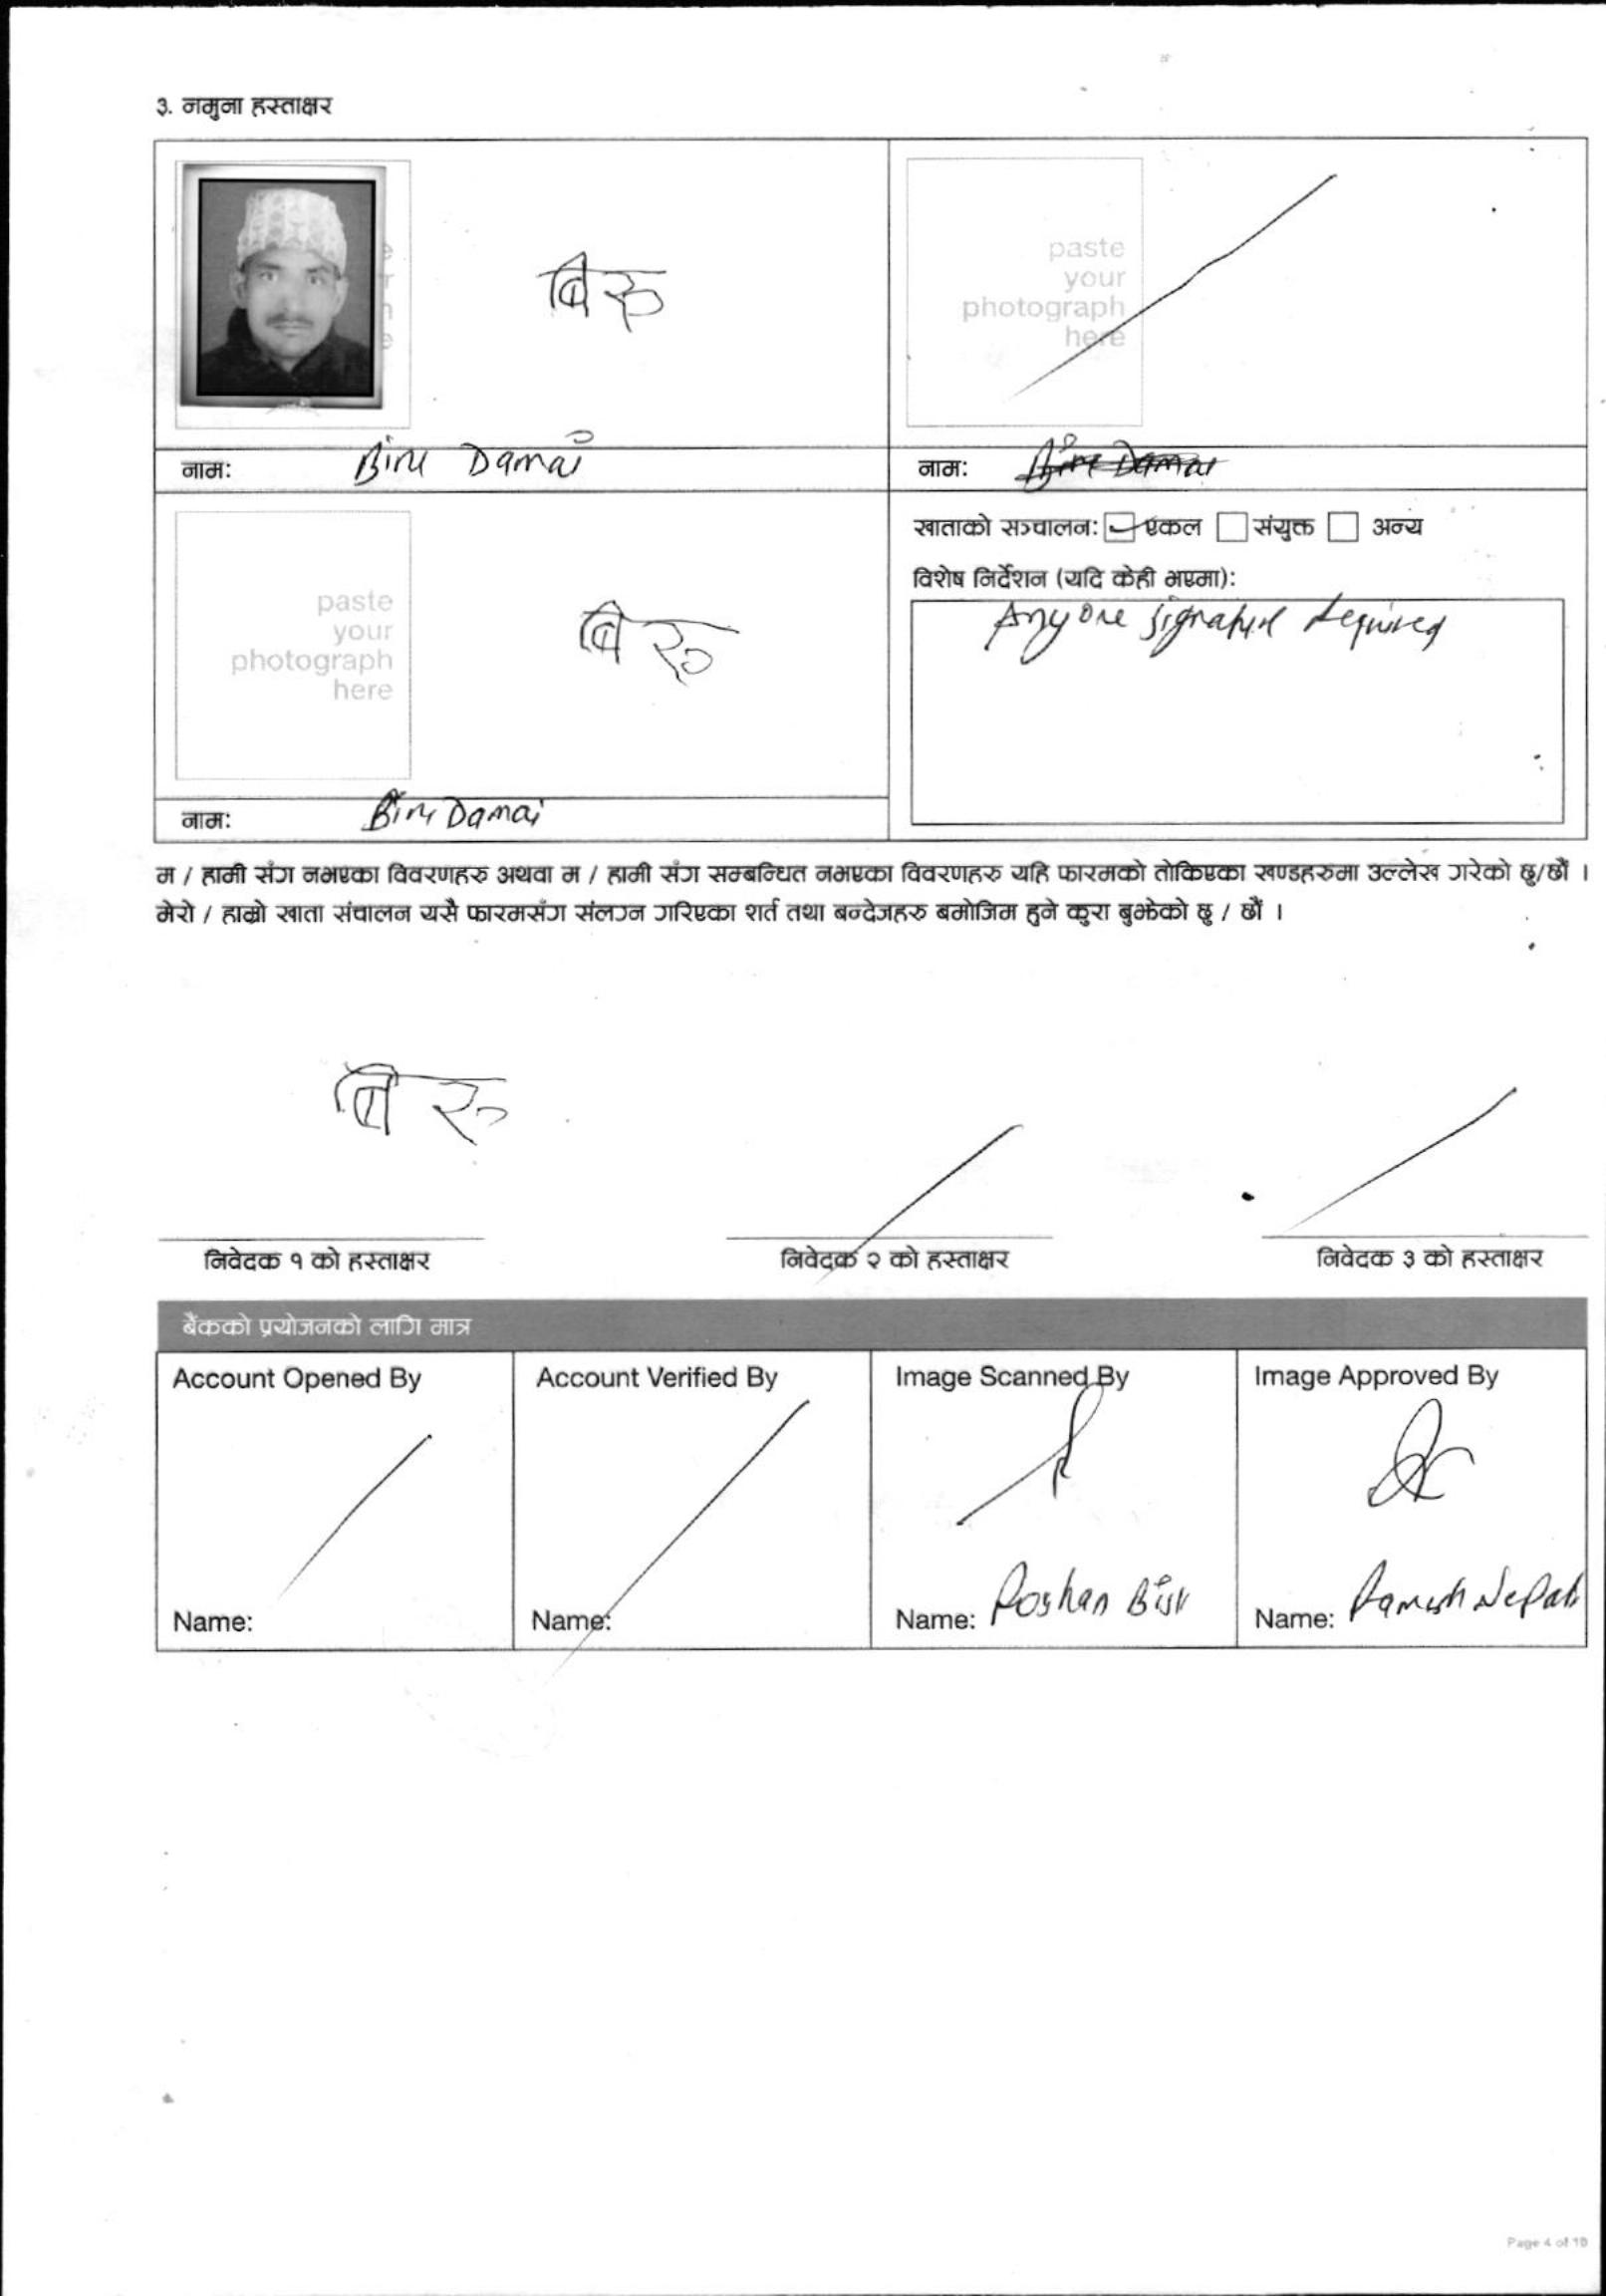 ३. नमुना हस्ताक्षर
बिरु
paste
your
photograph
here
नाम: Biru Damai
नाम: Biru Damai
paste
your
photograph
here
बिरु
खाताको सञ्चालन: एकल संयुक्त अन्य
विशेष निर्देशन (यदि केही भएमा):
Anyone signature required
नाम: Biru Damai
म / हामी संग नभएका विवरणहरु अथवा म / हामी संग सम्बन्धित नभएका विवरणहरु यहि फारमको तोकिएका खण्डहरुमा उल्लेख गरेको छु/छौं ।
मेरो / हाम्रो खाता संचालन यसै फारमसंग संलग्न गरिएका शर्त तथा बन्देजहरु बमोजिम हुने कुरा बुझेको छु / छौं ।
बिरु
निवेदक १ को हस्ताक्षर निवेदक २ को हस्ताक्षर निवेदक ३ को हस्ताक्षर
बैंकको प्रयोजनको लागि मात्र
Account Opened By Account Verified By Image Scanned By Image Approved By
Name: Name: Name: Roshan Bist Name: Ramesh Nepali
Page 4 of 10